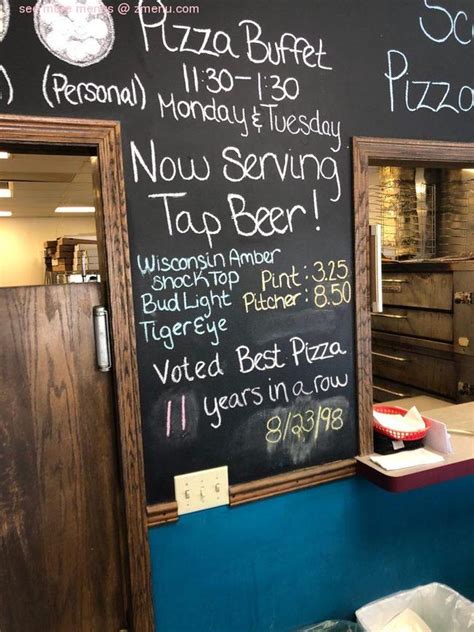 see more menus @ zmenu.com
Pizza Buffet
11:30-1:30
Monday & Tuesday
(Personal)
Pizza
Now Serving
Tap Beer!
Wisconsin Amber
Shock Top
Bud Light
Tiger Eye
Pint: 3.25
Pitcher: 8.50
Voted Best Pizza
11 years in a row
8/23/98